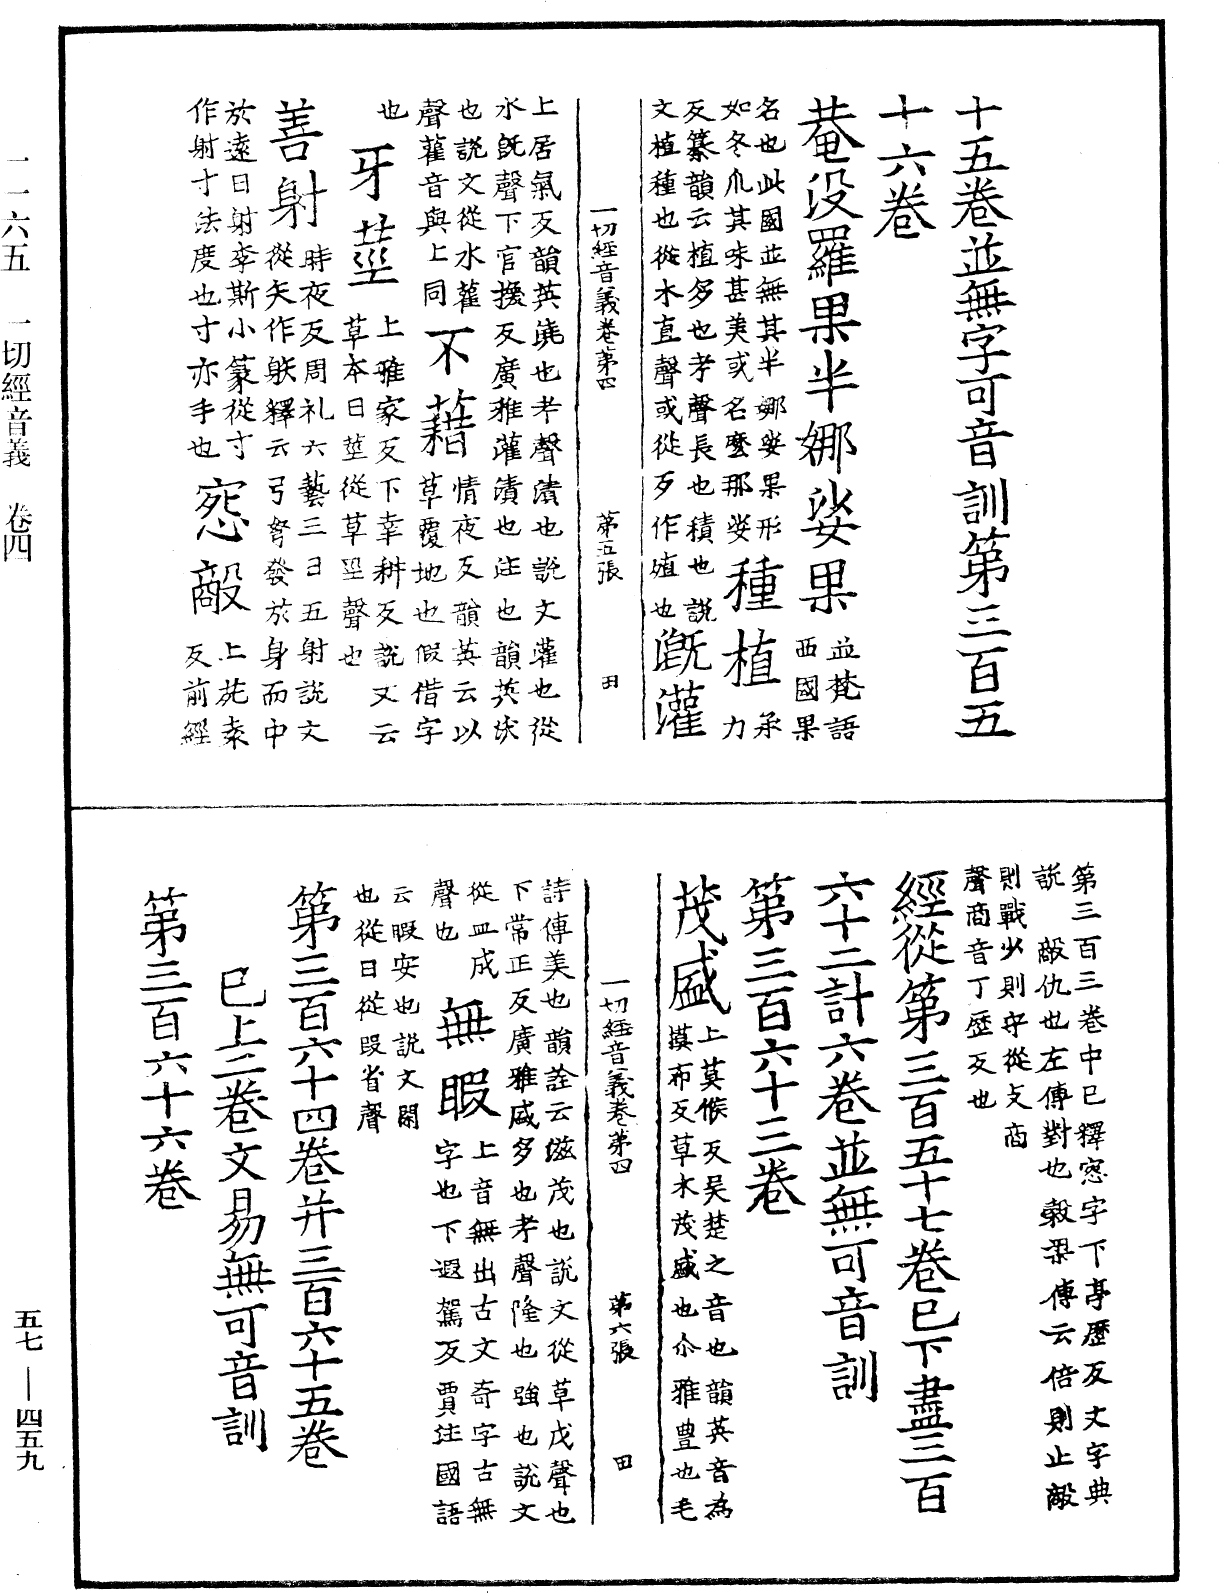 十五卷並無字可音訓第三百五
十六卷
菴没羅果半娜娑果並梵語
西國果
名也此國並無其半娜娑果形
如冬瓜其味甚美或名麼那娑種植承力
反篆韻云植多也考聲長也積也說
文植種也從木直聲或從歹作殖也溉灌
一切經音義卷第四　第五張　田
上居氣反韻英溉也考聲漬也說文灌也從
水既聲下官換反廣雅灌漬也注也韻英沃
也說文從水雚聲雚音與上同不藉情夜反韻英云以
草覆地也假借字
也牙莖上雅家反下幸耕反說文云
草本曰莖從草巠聲也
善射時夜反周礼六藝三曰五射說文
從矢作䠶釋云弓弩發於身而中
於遠曰射李斯小篆從寸
作射寸法度也寸亦手也㤪敵上苑袁
反前經
第三百三卷中已釋㤪字下亭歷反文字典
說敵仇也左傳對也穀梁傳云倍則止敵
則戰少則守從攴啇
聲啇音丁歷反也
經從第三百五十七卷已下盡三百
六十二計六卷並無可音訓
第三百六十三卷
茂盛上莫候反吴楚之音也韻英音為
摸布反草木茂盛也尒雅豊也毛
一切經音義卷第四　第六張　田
詩傳美也韻詮云滋茂也說文從草戊聲也
下常正反廣雅盛多也考聲隆也強也說文
從皿成
聲也無暇上音無出古文奇字古無
字也下遐駕反賈注國語
云暇安也說文閑
也從日從叚省聲
第三百六十四卷并三百六十五卷
已上二卷文易無可音訓
第三百六十六卷
一一六五　一切經音義　卷四
五七—四五九